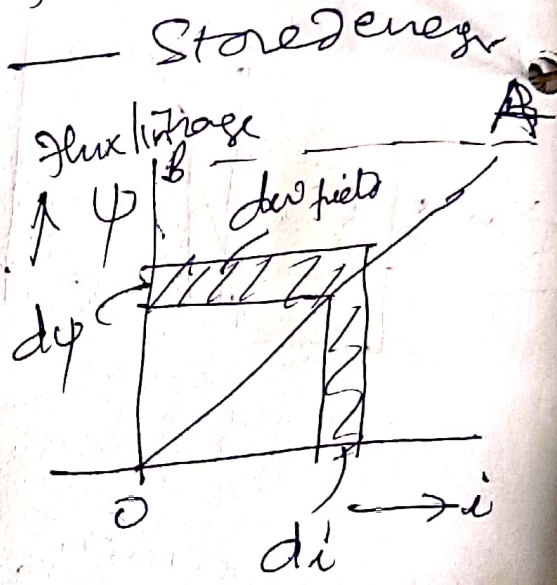 — Stored energy
Flux linkage
B
A
↑ ψ
dw field
dψ
O
→ i
di